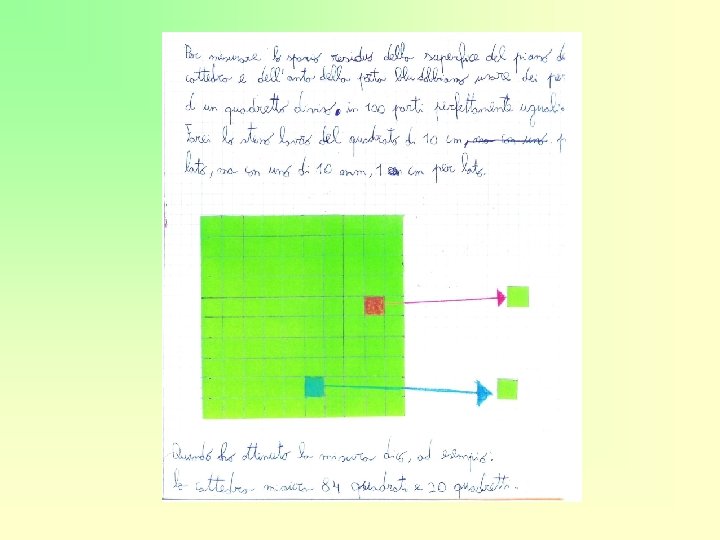 Per misurare lo spazio residuo della superficie del piano de
cattedra e dell'anta della porta blu dobbiamo usare dei pez
di un quadretto diviso in 100 parti perfettamente uguali.
Farei lo stesso lavoro del quadrato di 10 cm, ma con uno p
lato, ma con uno di 10 mm, 1 cm per lato.
Quando ho ottenuto la misura dico, ad esempio:
la cattedra misura 84 quadrati e 20 quadretti.